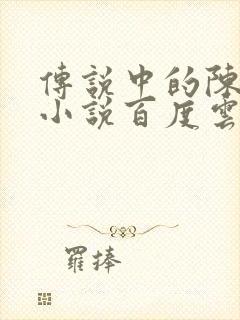 傳說中的陳
小說百度雲
羅捧